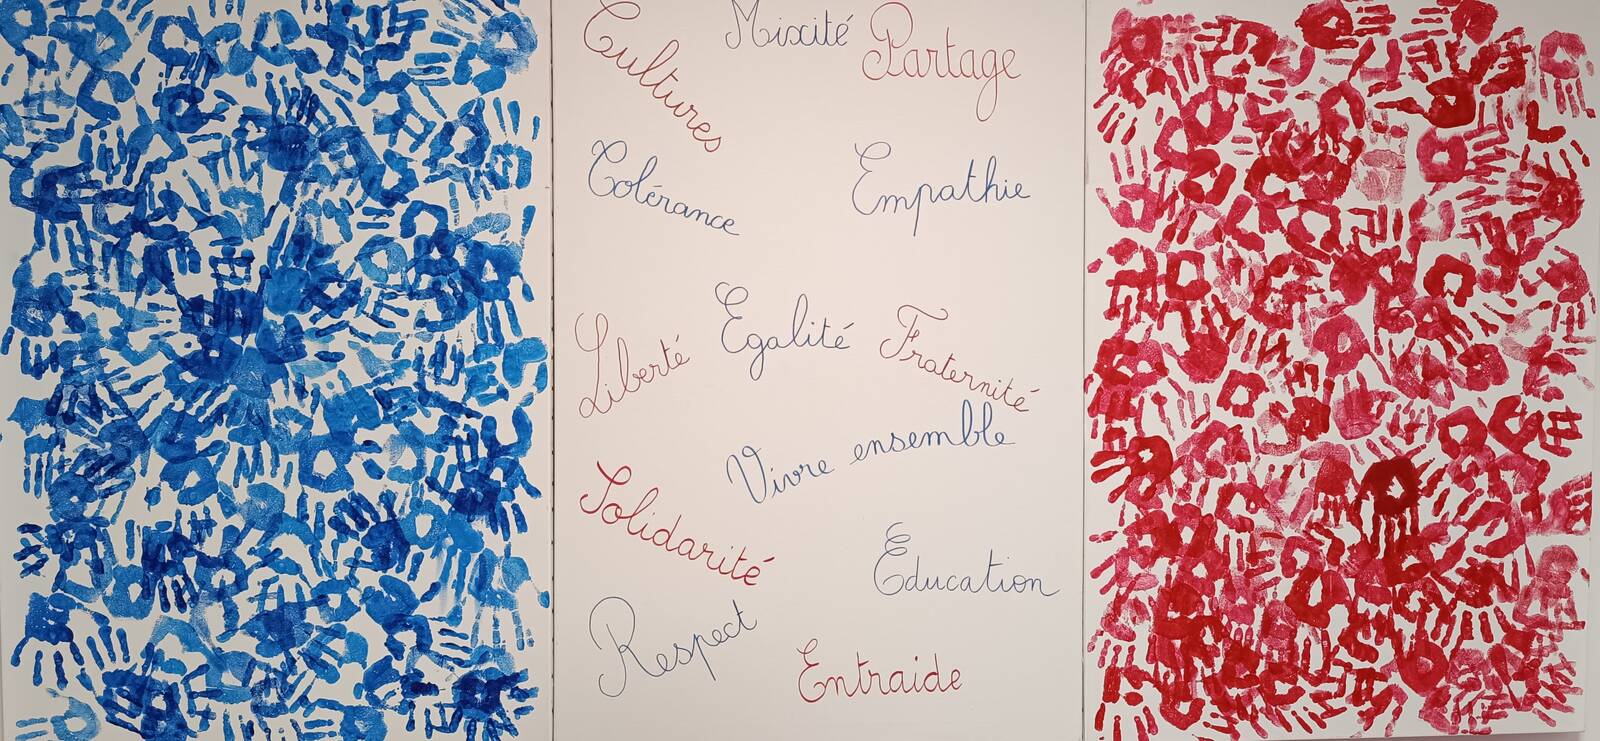 Cultures
Mixité
Partage
Tolérance
Empathie
Liberté
Egalité
Fraternité
Vivre ensemble
Solidarité
Education
Respect
Entraide